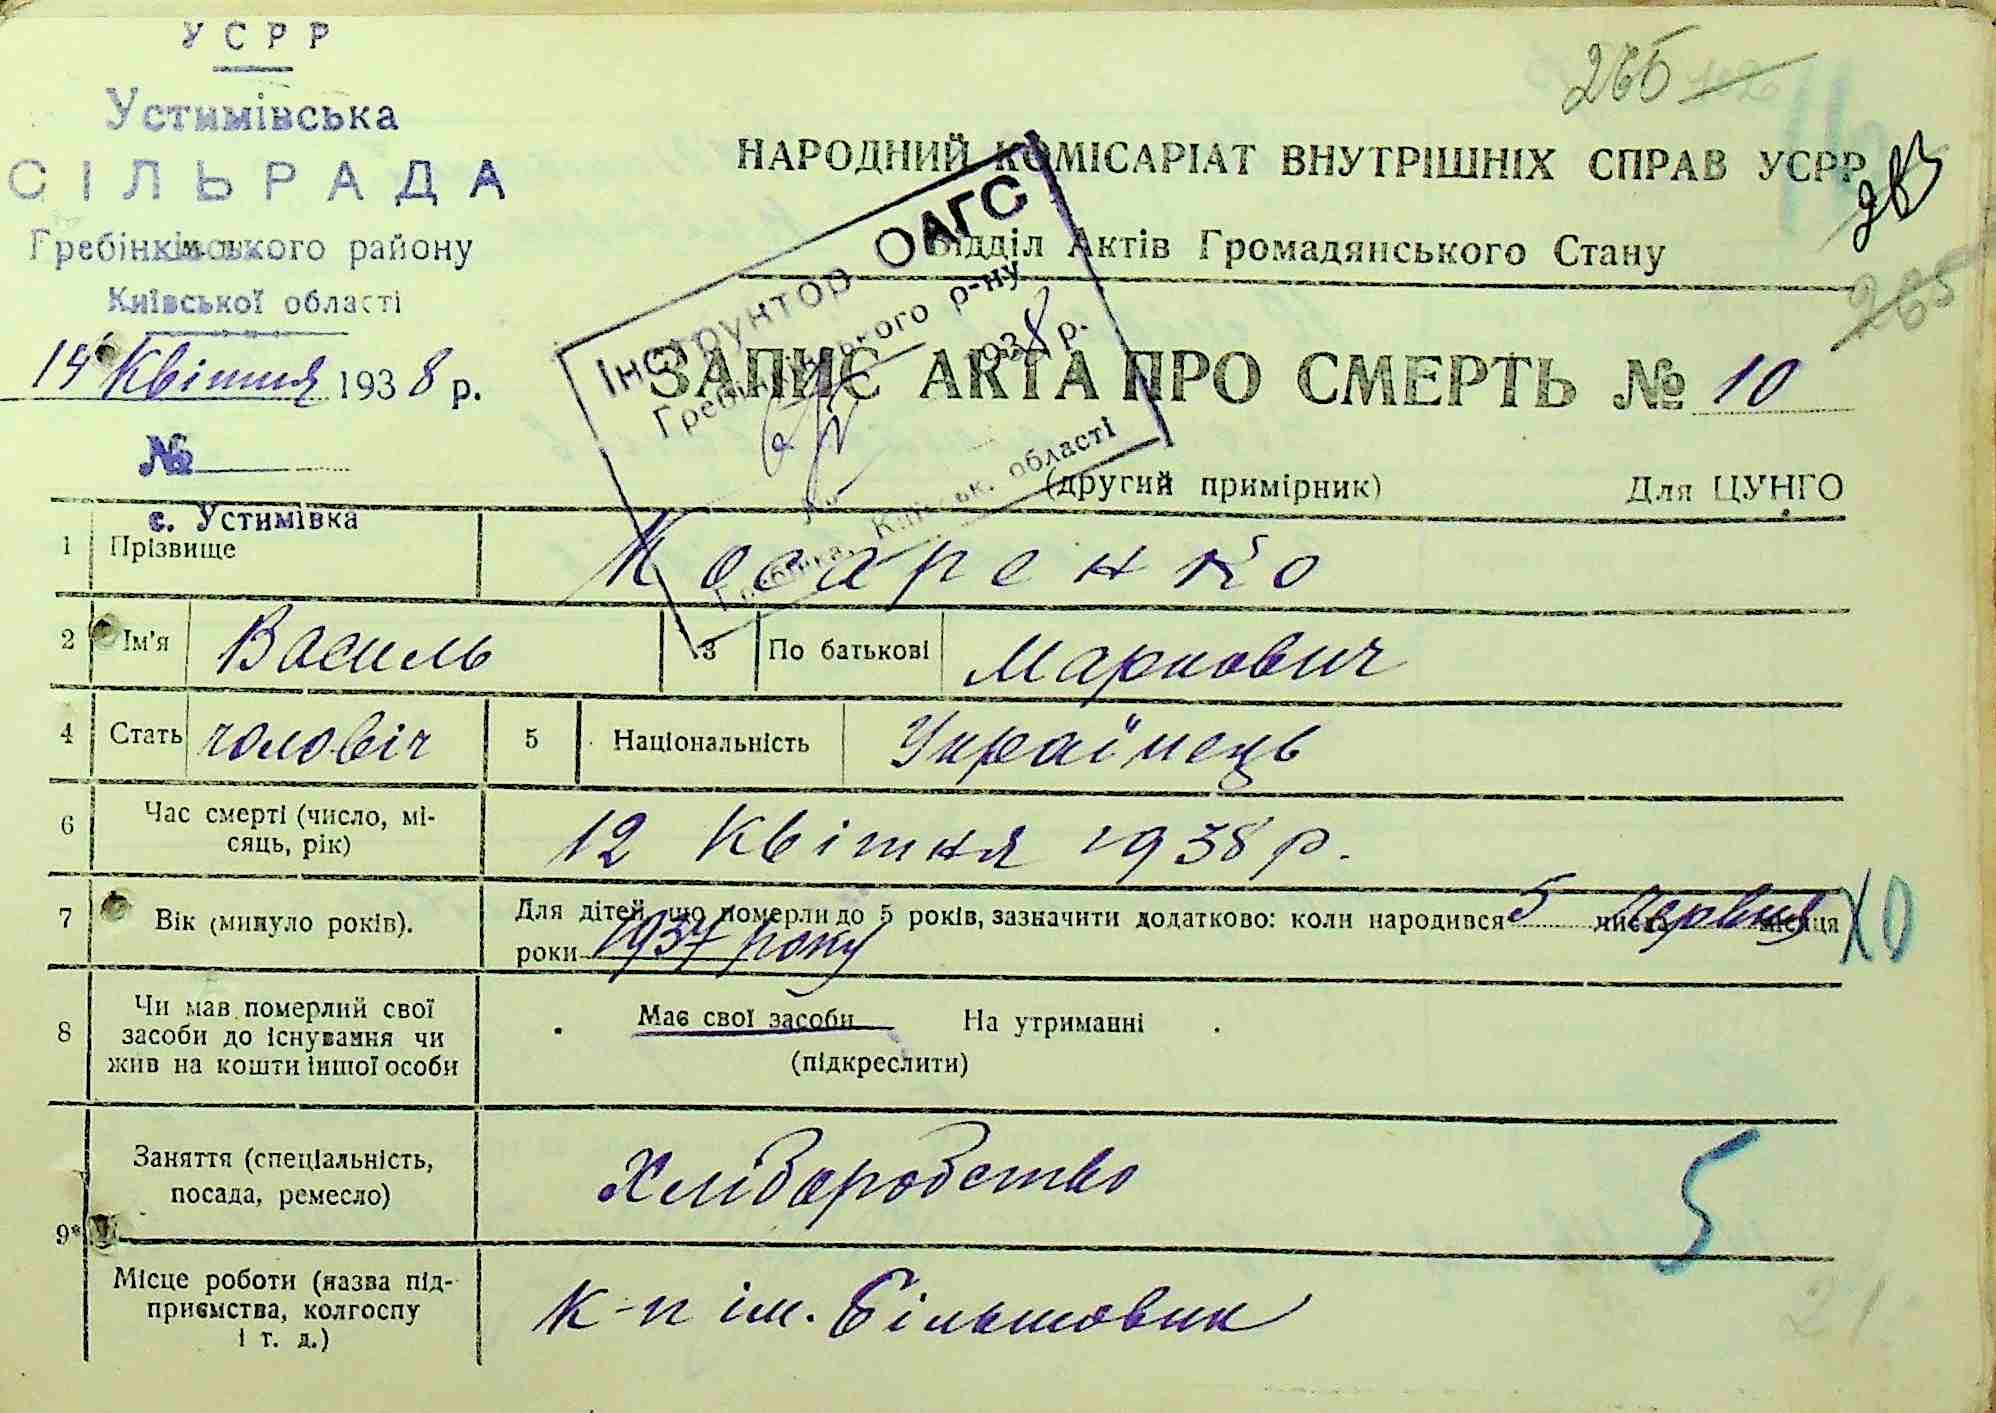 УСРР
Устимівська
СІЛЬРАДА
Гребінківського району
Київської області
14 Квітня 1938 р.
№
с. Устимівка
265
НАРОДНИЙ КОМІСАРІАТ ВНУТРІШНІХ СПРАВ УСРР
Відділ Актів Громадянського Стану
265
ЗАПИС АКТА ПРО СМЕРТЬ № 10
(другий примірник) Для ЦУНГО
Інструктор ОАГС
Гребінківського р-ну
1938 р.
Гребінка, Київськ. області
1 Прізвище Косаренко
2 Ім'я Василь 3 По батькові Маркович
4 Стать чоловіч 5 Національність Українець
6 Час смерті (число, мі-
сяць, рік) 12 Квітня 1938 р.
7 Вік (минуло років). Для дітей, що померли до 5 років, зазначити додатково: коли народився 5 числа червня місяця
роки 1937 року
ХО
8 Чи мав померлий свої
засоби до існування чи
жив на кошти іншої особи
Має свої засоби На утриманні
(підкреслити)
9* Заняття (спеціальність,
посада, ремесло) Хліборобство
5
Місце роботи (назва під-
приємства, колгоспу
і т. д.) к-п ім. Більшовик
21